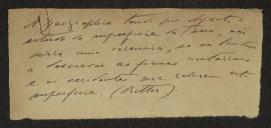 A Geographia tendo por objecto o
estudo da superficie da terra, não
seria uma sciencia, se se limitasse
a descrever as formas
e os accidentes que cobrem esta
superficie. (Ritter)